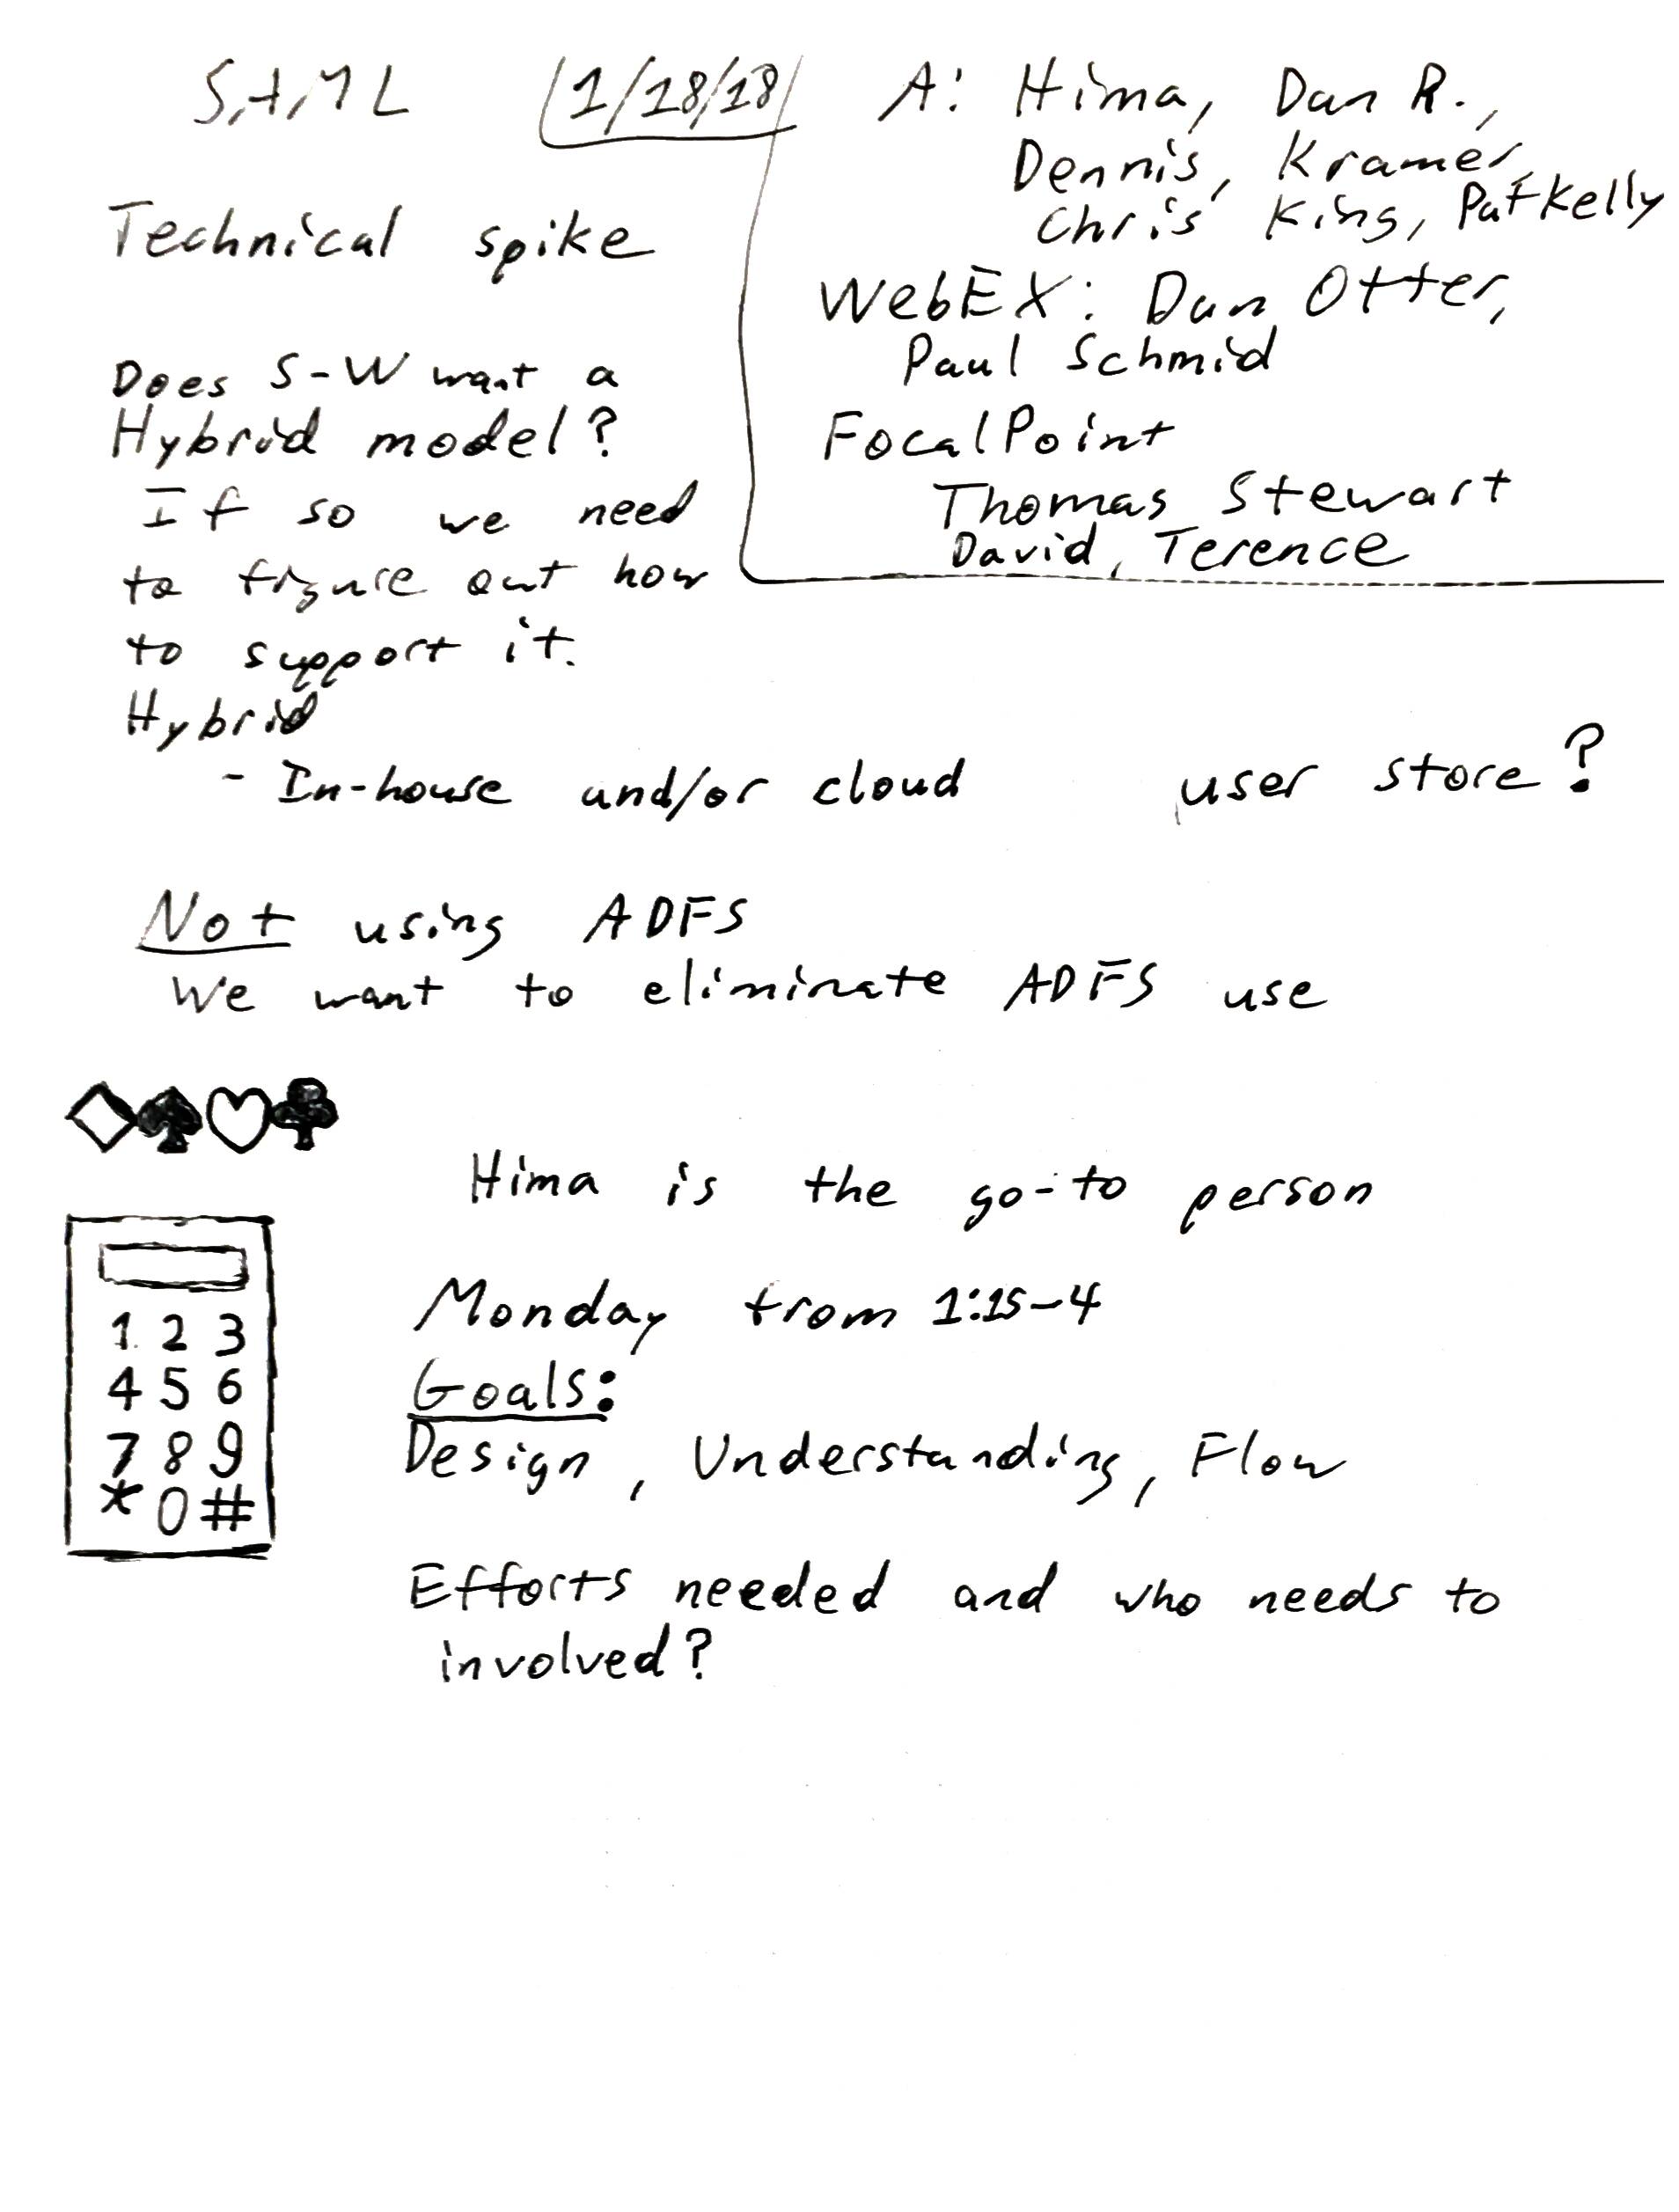 SAML 1/18/18
A: Hima, Dan R.,
Dennis, Kramer,
Chris King, Pat Kelly
WebEX: Dan Otter,
Paul Schmid
FocalPoint
Thomas Stewart
David, Terence
Technical spike
Does S-W want a
Hybrid model?
If so we need
to figure out how
to support it.
Hybrid
- In-house and/or cloud user store?
Not using ADFS
We want to eliminate ADFS use
Hima is the go-to person
Monday from 1:15-4
Goals:
Design, Understanding, Flow
Efforts needed and who needs to
involved?
1 2 3
4 5 6
7 8 9
* 0 #